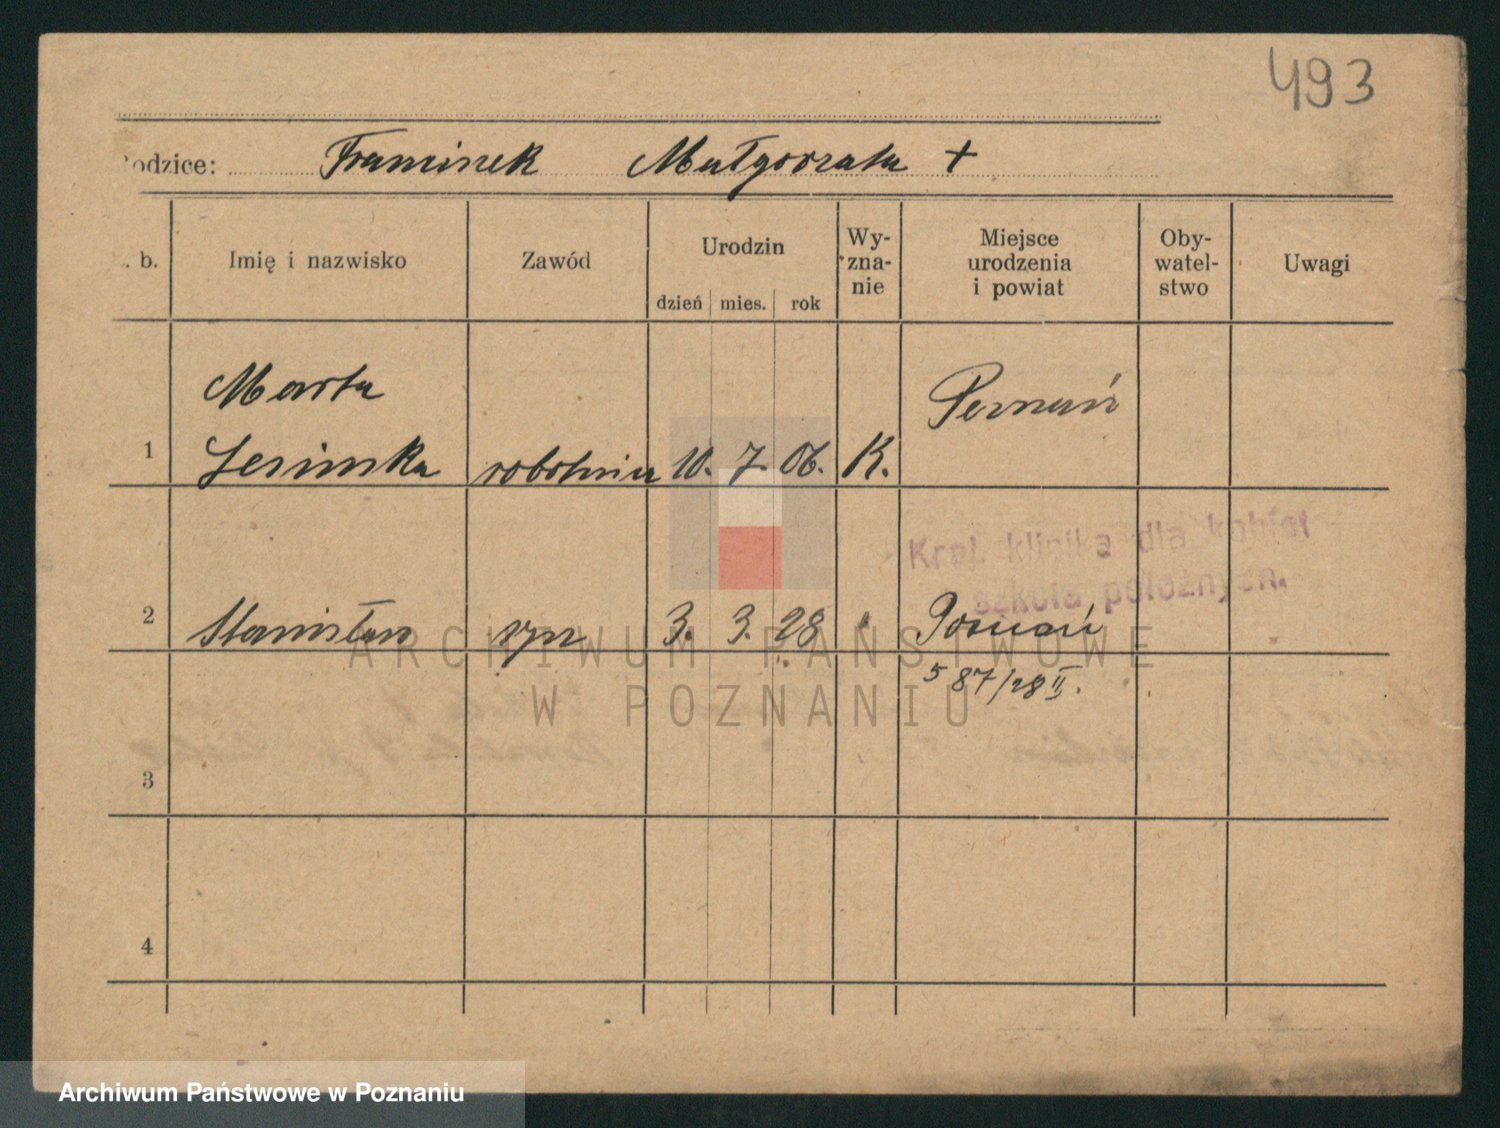 493
Rodzice: Franciszek Małgorzata +
. b. Imię i nazwisko Zawód Urodzin dzień mies. rok Wy-zna-nie Miejsce urodzenia i powiat Oby-watel-stwo Uwagi
Marta Poznań
1 robotnica 10. 7 06. K.
Król. klinika dla kobiet
szkoła położnych.
2 Stanisław syn 3. 3. 28 " Poznań
587/28 II.
3
4
ARCHIWUM PAŃSTWOWE
W POZNANIU
Archiwum Państwowe w Poznaniu